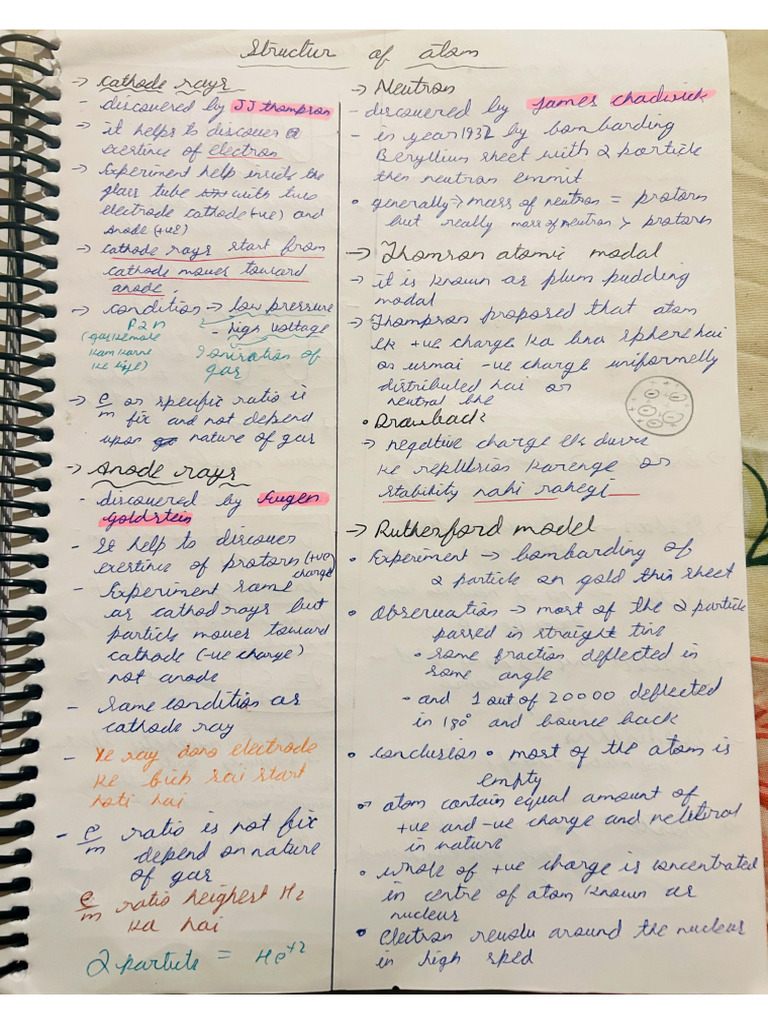 Structur of atom
→ Cathode rays
- discovered by JJ thompson
→ it helps to discover
exestince of electron
→ Experiment help inside the
glass tube with two
electrode cathode (-ve) and
anode (+ve)
→ cathode rays start from
cathode moves toward
anode.
→ condition → low pressure
- high voltage
(gas ke mole
kam karne
ke liye)
Ionization of
gas
→ e/m or specific ratio is
fix and not depend
upon nature of gas
→ Anode rays
- discovered by Eugen
Goldstein
- It help to discover
exestince of protorn (+ve
charge)
- Experiment same
as cathod rays but
particle moves toward
cathode (-ve charge)
not anode
- Same condition as
cathode ray
- Ye ray dono electrode
ke bich sai start
hoti hai
- e/m ratio is not fix
depend on nature
of gas
e/m ratio heighest H2
ka hai
α particle = He+2
→ Neutron
- discovered by James Chadwick
- in year 1932 by bombarding
Beryllium sheet with α particle
then neutron emmit
• generally → mass of neutron = protorn
but really mass of neutron > protorn
→ Thomson atomic modal
→ it is known as plum pudding
modal
→ Thompson proposed that atom
ek +ve charge ka bna sphere hai
or usmai -ve charge uniformelly
distributed hai or
neutral bhe
• Drawback
→ negative charge ek dusre
ko replusion karenge or
stability nahi rahegi
→ Rutherford model
• Experiment → bombarding of
α particle on gold thin sheet
• Observation → most of the α particle
parred in straight line
• some fraction deflected in
some angle
• and 1 out of 20000 deflected
in 180° and bounce back
• conclusion • most of the atom is
empty
• atom contain equal amount of
+ve and -ve charge and neteural
in nature
• whole of +ve charge is concentrated
in centre of atom known as
nucleus
• Electron revolu around the nucleus
in high sped